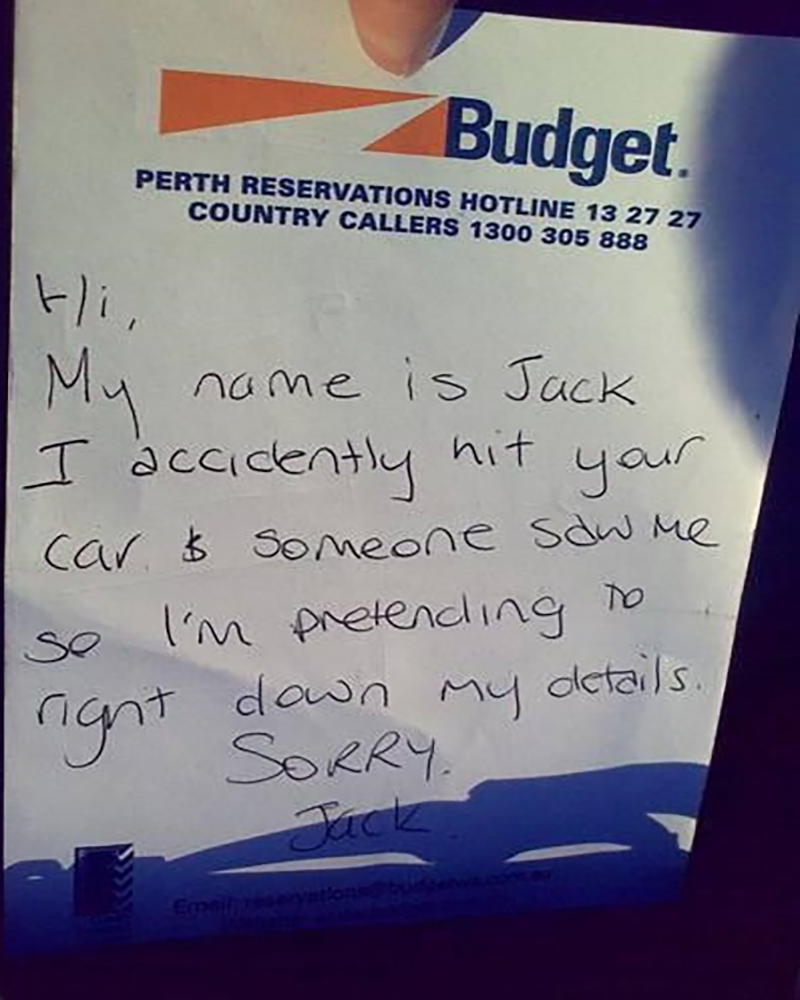 Budget.
PERTH RESERVATIONS HOTLINE 13 27 27
COUNTRY CALLERS 1300 305 888
Hi,
My name is Jack
I accidently hit your
car & someone saw me
so I'm pretending to
right down my details.
SORRY.
Jack.
Email: reservations@budgetwa.com.au